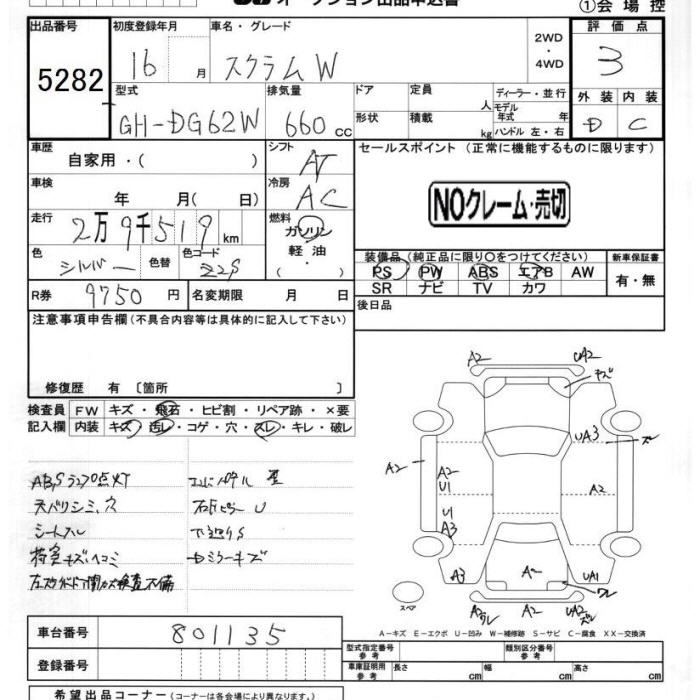 オークション出品申込書
①会場控
出品番号 初度登録年月 車名・グレード 評価点
5282 16 月 スクラムW 2WD ・ 4WD 3
型式 排気量 ドア 定員 人 ディーラー・並行 外装 内装
GH-DG62W 660 cc 形状 積載 kg モデル年式 年 ハンドル 左・右 D C
車歴 自家用・( ) シフト AT セールスポイント (正常に機能するものに限ります)
車検 年 月( 日) 冷房 AC
NOクレーム・売切
走行 2万9千519 km 燃料 ガソリン 軽油 ・ ( )
色 シルバー 色替 色コード Z2S
装備品(純正品に限り○をつけてください) 新車保証書
PS PW ABS エアB AW 有・無
SR ナビ TV カワ
R券 9750 円 名変期限 月 日 後日品
注意事項申告欄(不具合内容等は具体的に記入して下さい)
修復歴 有 〔箇所 〕
検査員 FW キズ・飛石・ヒビ割・リペア跡・×要
記入欄 内装 キズ・汚レ・コゲ・穴・スレ・キレ・破レ
ABSランプ点灯
天バリシミ、穴
シートスレ
A2 UA2
UA3
A2 A2 U1 A2
U1 A3
A3 A2 UA1 ワレ
スペア A2 UA2
A-キズ E-エクボ U-凹み W-補修跡 S-サビ C-腐食 XX-交換済
車台番号 801135
登録番号
型式指定番号 類別区分番号
車庫証明用参考 長さ cm 幅 cm 高さ cm
希望出品コーナー(コーナーは各会場により異なります)